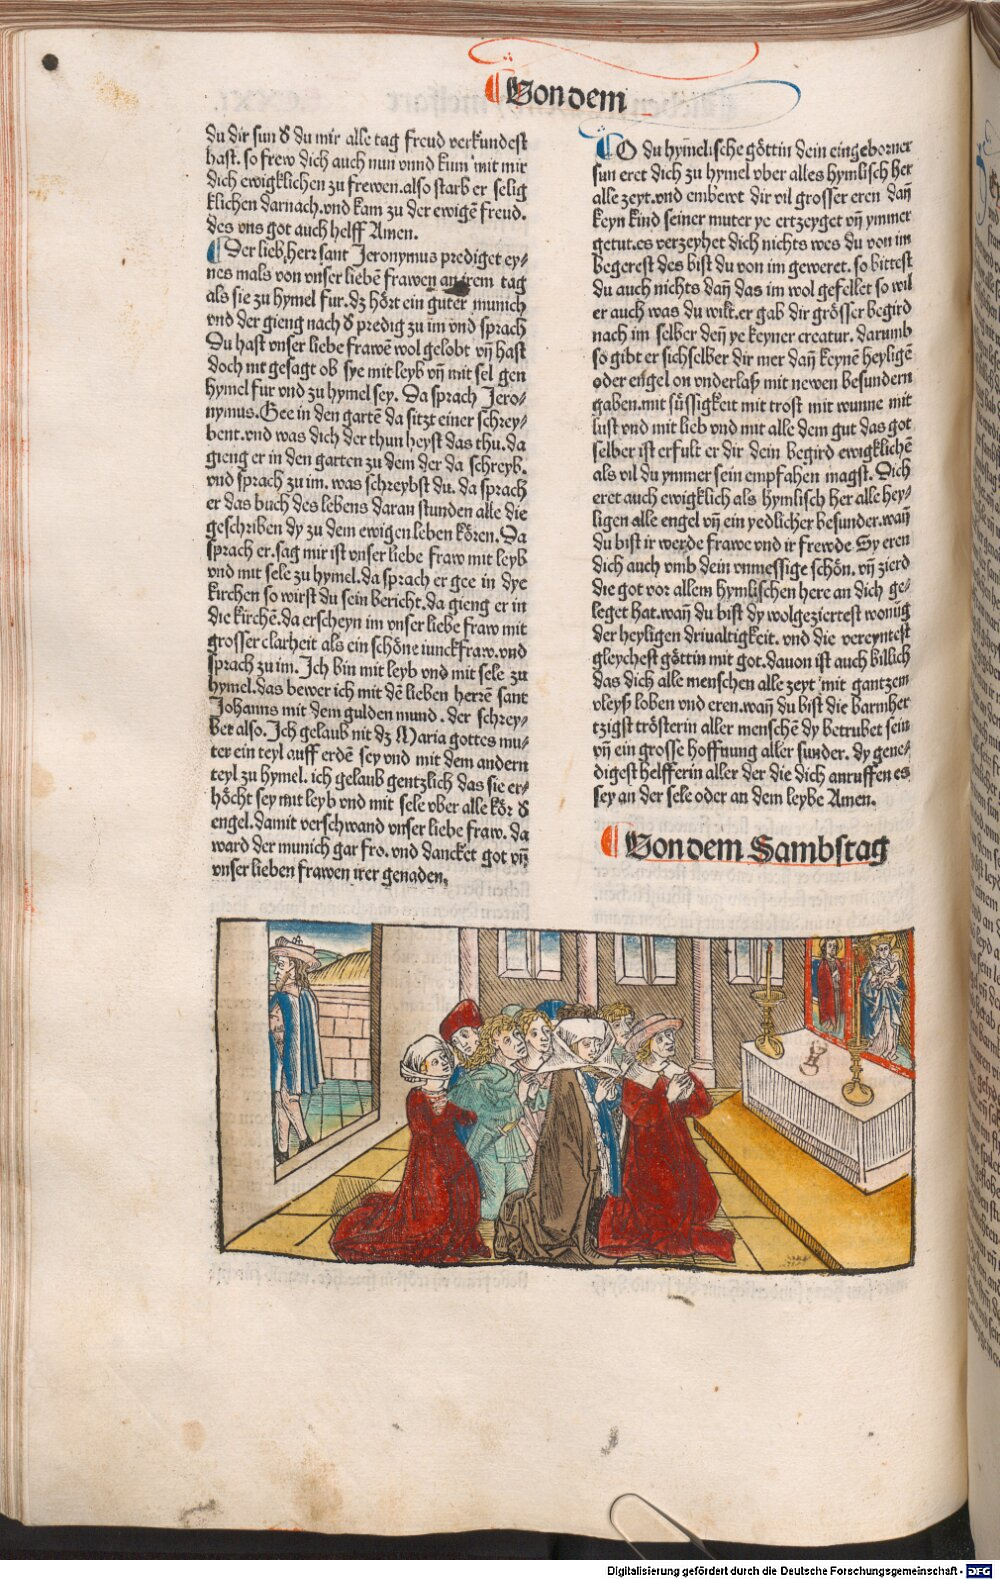 Von dem
du dir sun d̕ du mir alle tag freud verkundest
hast. so frew dich auch nun vnnd kum mit mir
dich ewigklichen zu frewen. also starb er selig
klichen darnach. vnd kam zu der ewigē freud.
des vns got auch helff Amen.
Der lieb herz sant Jeronymus prediget ey⸗
nes mals von vnser liebē frawen an irem tag
als sie zu hymel fur. dz hört ein guter munich
vnd der gieng nach d̕ predig zu im vnd sprach
Du hast vnser liebe frawē wol gelobt vñ hast
doch nit gesagt ob sye mit leyb vñ mit sel gen
hymel fur vnd zu hymel sey. Da sprach Jero⸗
nymus. Gee in den gartē da sitzt einer schrey⸗
bent. vnd was dich der thun heyst das thu. da
gieng er in den garten zu dem der da schreyb.
vnd sprach zu im. was schreybst du. da sprach
er das buch des lebens daran stunden alle die
geschriben dy zu dem ewigen leben kören. Da
sprach er. sag mir ist vnser liebe fraw mit leyb
vnd mit sele zu hymel. da sprach er gee in dye
kirchen so wirst du sein bericht. da gieng er in
die kirchē. da erscheyn im vnser liebe fraw mit
grosser clarheit als ein schöne iunckfraw. vnd
sprach zu im. Ich bin mit leyb vnd mit sele zu
hymel. das bewer ich mit dē lieben herrē sant
Johanns mit dem gulden mund. der schrey⸗
bet also. Ich gelaub nit dz Maria gottes mu⸗
ter ein teyl auff erdē sey vnd mit dem andern
teyl zu hymel. ich gelaub gentzlich das sie er⸗
höcht sey mit leyb vnd mit sele vber alle kör d̕
engel. damit verschwand vnser liebe fraw. da
ward der munich gar fro. vnd dancket got vñ
vnser lieben frawen irer genaden.
O du hym̄elische göttin dein eingeborner
sun eret dich zu hymel vber alles hymlisch her
alle zeyt. vnd embewt dir vil grosser eren dañ
keyn kind seiner muter ye ertzeyget vñ ymmer
getut. es verzeyhet dich nichts wes du von im
begerest des bist du von im geweret. so bittest
du auch nichts dañ das im wol gefellet so wil
er auch was du wilt. er gab dir grösser begird
nach im selber deñ ye keyner creatur. darumb
so gibt er sichselber dir mer dañ keynē heyligē
oder engel on vnderlaß mit newen besundern
gaben. mit süssigkeit mit trost mit wunne mit
lust vnd mit lieb vnd mit alle dem gut das got
selber ist erfult er dir dein begird ewigklichē
als vil du ymmer sein empfahen magst. Dich
eret auch ewigklich als hymlisch her alle hey⸗
ligen alle engel vñ ein yedlicher besunder. wañ
du bist ir werde frawe vnd ir frewde Sy eren
dich auch vmb dein vnmessige schön. vñ zierd
die got vor allem hymlischen here an dich ge⸗
leget hat. wañ du bist dy wolgeziertest wonūg
der heyligen driualtigkeit. vnd die vereyntest
gleychest göttin mit got. dauon ist auch billich
das dich alle menschen alle zeyt mit gantzem
vleyß loben vnd eren. wañ du bist die barmher
tzigst trösterin aller menschē dy betrubet sein
vñ ein grosse hoffnung aller sunder. dy gene⸗
digest helfferin aller der die dich anruffen es
sey an der sele oder an dem leybe Amen.
Von dem Sambstag
Digitalisierung gefördert durch die Deutsche Forschungsgemeinschaft - DFG